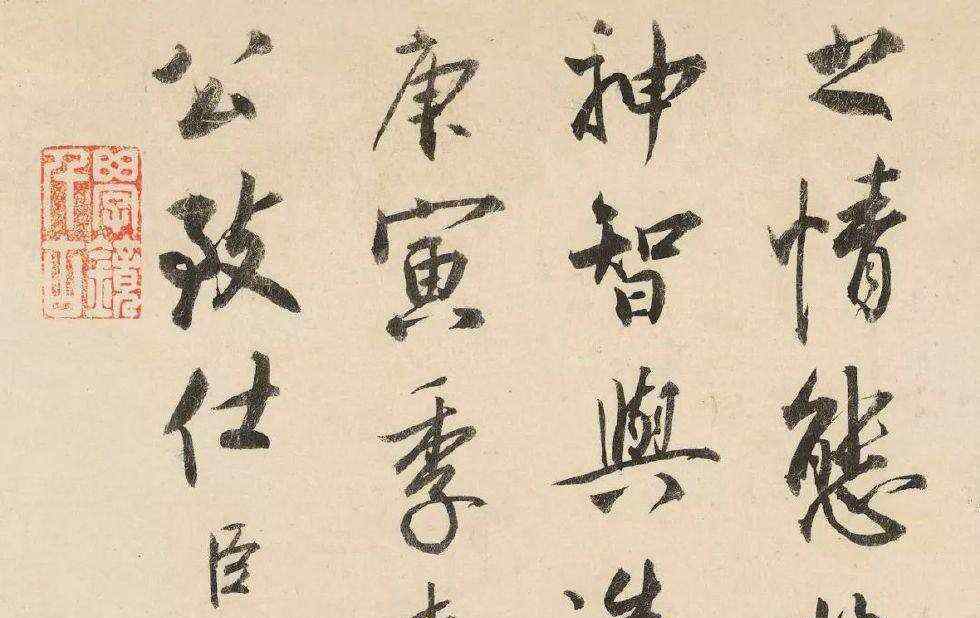 之情態
神智與造
庚寅季春
公致仕臣